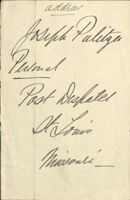 address
Joseph Pulitzer
Personal
Post Dispatch
St Louis
Missouri